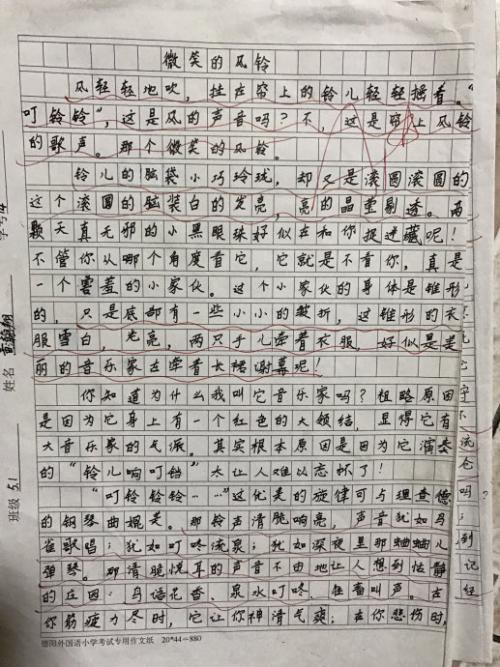 微笑的风铃
风轻轻地吹，挂在帘上的铃儿轻轻摇着。“
叮铃铃”，这是风的声音吗？不，这是帘上风铃
的歌声。那个微笑的风铃。
铃儿的脑袋小巧玲珑，却又是滚圆滚圆的
这个滚圆的脑袋白的发亮，亮的晶莹剔透。两
颗天真无邪的小黑眼珠好似在和你捉迷藏呢！
不管你从哪个角度看它，它就是不看你，真是
一个害羞的小家伙。这个小家伙的身体是锥形
的，只是底部有一些小小的皱折，这锥形的衣
服雪白，光亮，两只手儿牵着衣服，好似是美
丽的音乐家在牵着长裙谢幕呢！
你知道为什么我叫它音乐家吗？粗略原因
是因为它身上有一个红色的大领结，显得它有
大音乐家的气派。其实根本原因是因为它演奏
的“铃儿响叮铛”太让人难以忘怀了！
“叮铃铃铃……”这优美的旋律可与理查德
的钢琴曲媲美。那铃声清脆响亮，声音犹如鸟
雀歌唱；犹如叮咚流泉；犹如深夜里那蛐蛐儿
弹琴。那清脆悦耳的声音不由地让人想到恬静
的庄园：鸟语花香、泉水叮咚、牲畜叫声。在
你筋疲力尽时，它让你神清气爽；在你悲伤时，
德阳外国语小学考试专用作文纸 20*44=880
班级 5.1
姓名
学号 14